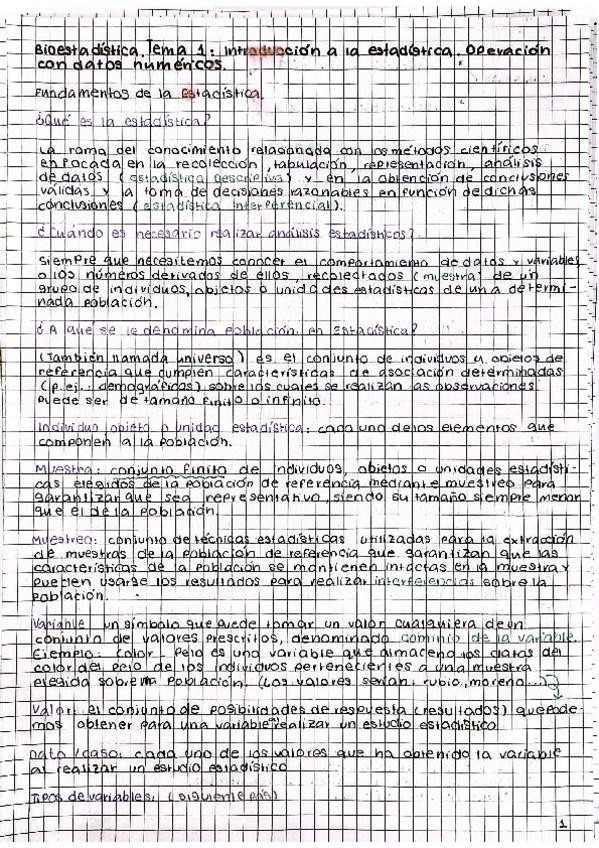 Bioestadística. Tema 1: Introducción a la estadística. Operación
con datos numéricos.
Fundamentos de la Estadística.
¿Qué es la estadística?
La rama del conocimiento relasionada con los métodos científicos
enfocada en la recolección, tabulación, representación, análisis
de datos (estadística descriptiva) y en la obtención de conclusiones
válidas y la toma de decisiones razonables en función de dichas
conclusiones (estadística interferencial).
¿Cuándo es necesario realizar análisis estadísticos?
Siempre que necesitemos conocer el comportamiento de datos y variables
o los números derivados de ellos, recolectados (muestra) de un
grupo de individuos, objetos o unidades estadísticas de una determi-
nada población.
¿A qué se le denomina población en Estadística?
(También namada universo) es el conjunto de individuos u objetos de
referencia que cumplen características de asociación determinadas
(p.ej.: demográficas) sobre los cuales se realizan las observaciones
Puede ser de tamaño finito o infinito.
Individuo objeto o unidad estadística: cada uno de los elementos que
componen a la población.
Muestra: conjunto finito de individuos, objetos o unidades estadísti-
cas elegidos de la población de referencia mediante muestreo para
garantizar que sea representativo, siendo su tamaño siempre menor
que el de la población.
Muestreo: conjunto de técnicas estadísticas utilizadas para la extracción
de muestras de la población de referencia que garantizan que las
características de la población se mantienen intactas en la muestra y
pueden usarse los resultados para realizar interferencias sobre la
población.
Variable un símbolo que puede tomar un valor cualquiera de un
conjunto de valores prescritos, denominado dominio de la variable.
Ejemplo: Color Pelo es una variable que almacena los datos del
color del pelo de los individuos pertenecientes a una muestra
elegida sobre una población. (Los valores serían: rubio, moreno...)
Valor: el conjunto de posibilidades de respuesta (resultados) que pode-
mos obtener para una variable al realizar un estudio estadístico
Dato / caso: cada uno de los valores que ha obtenido la variable
al realizar un estudio estadístico
Tipos de variables: (siguiente pág)
1